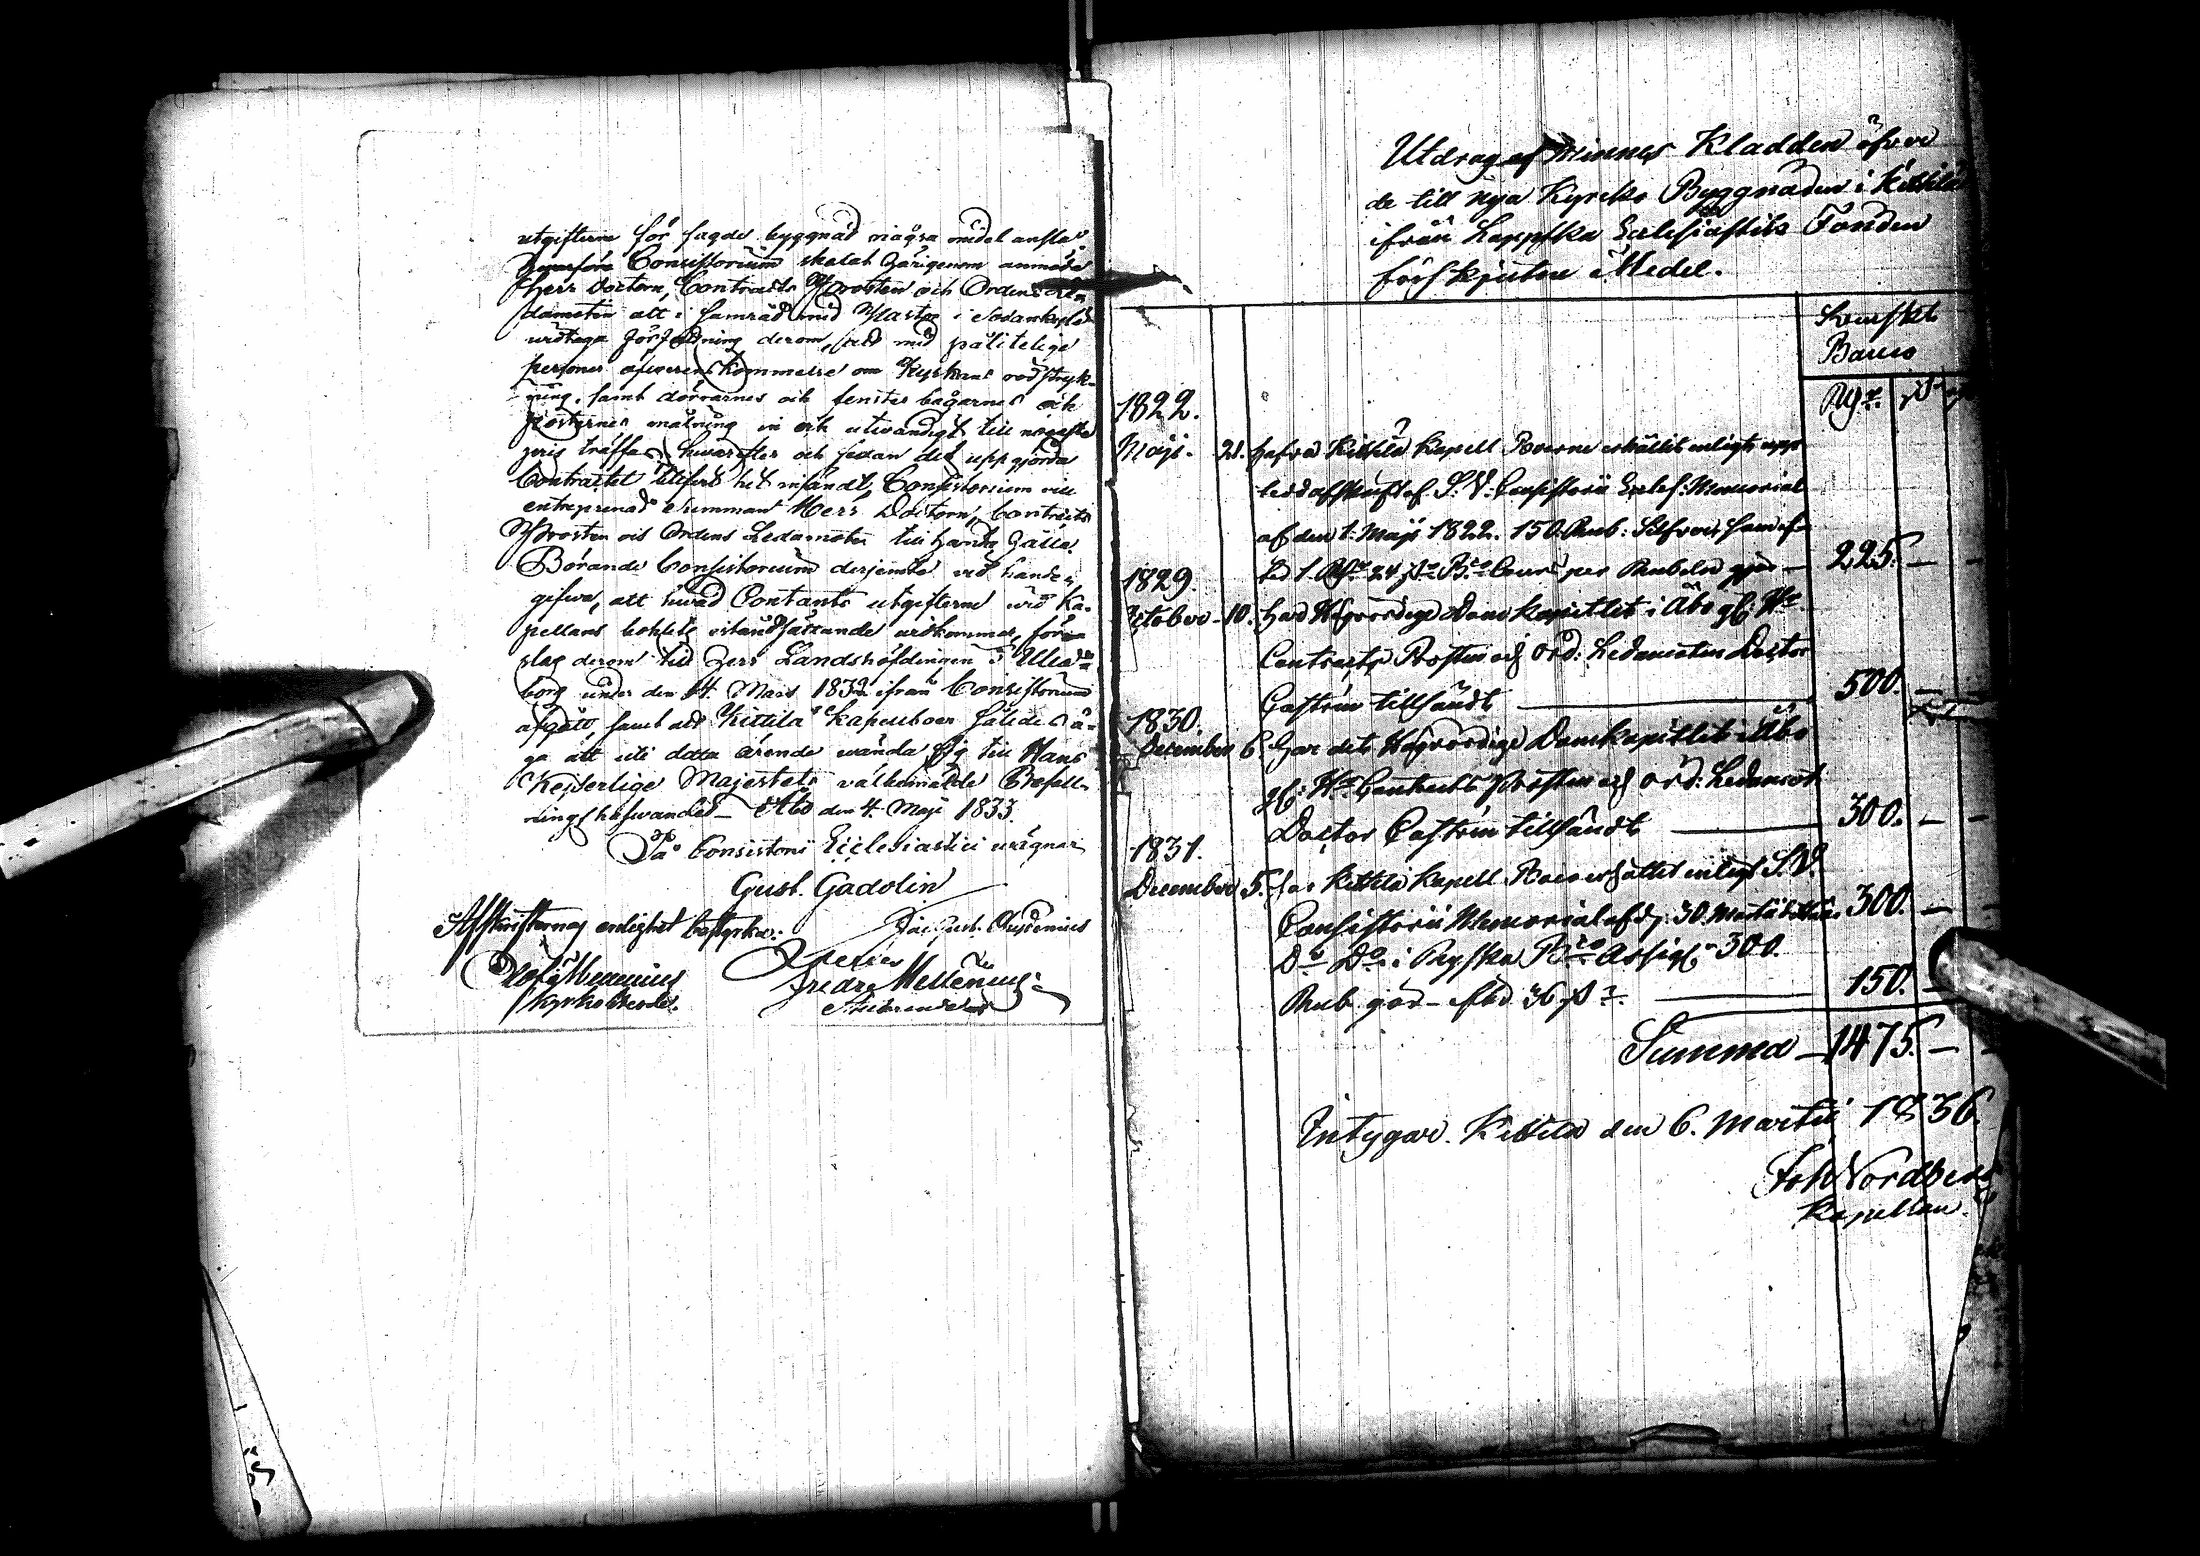 utgifterne för sagde byggnad några medel ansla
Consistorium skolat härigenom anmoda
Herr Doctorn, Contracts Prosten och Ordens Le
damoten att i samråd med Pastor i Sodankylä
widtaga förfogning derom, att med pålitelige
personer öfwerenskommelse om Kyrkans rödstryk-
ning, samt dörrarnes och fenster bågarnes och
posternes målning in och utwändigt till
pris träffas, hwarefter och sedan det uppgjorda
Contractet blifwit hit insändt, Consistorium will
entreprenad summan Herr Doctorn, Contracts
Prosten och Ordens Ledamoten till handa hålla.
Börande Consistorium derjemte wid handen
gifwa, att hwad Contanta utgifterne wid Ka-
pellans boställe iståndsättande widkommer, för
slag derom till Herr Landshöfdingen i Uleå-
borg under den 14. Mars 1832 ifrån Consistorium
afgått, samt att Kittilä Kapellboer således ä-
ga att uti detta ärende wända sig till Hans
Kejserlige Majestets välbemälde Befall-
ningshafwande. Åbo den 4. Maji 1833.
På Consistorii Ecclesiastici wägnar
Gust. Gadolin
Afskrifternes enlighet bestyrka:
Kyrkoherde.
Fredr. Mellenius
Utdrag af Minnes Kladden öfwer
de till nya Kyrcko Byggnaden i Kittilä
ifrån Lappska Eclesiastik Fonden
förskjutne Medel.
Swenskt
Banco
Rdr. s.
1822.
Maji. 21. hafwa Kittilä Kapell Boerne erhållit enligt
af S. V. Consistorii Eccles: Memorial
af den 1. Maji 1822. 150. Rub: Silfwer,
1 Rdr 24 s. Bco per Rubeln gör — 225. — —
1829.
October 10. Har Högvördige Domkapitlet i Åbo gl: Hr
Contracts Prosten och Ord: Ledamoten Doctor
Castrén tillsändt — 500. —
1830.
December 6. Har det Högvördige Domkapitlet i Åbo
gl: Hr Contracts Prosten och Ord: Ledamot
Doctor Castrén tillsändt — 300. — —
1831.
December 5. har Kittilä Kapell Boer erhållit enligt S. V.
Consistorii Memorial af d. 30. Martii 300. —
Do Do i Ryska Bco Assigl. 300.
Rub gör 36 s. — 150. —
Summa — 1475. — —
Intygar. Kittilä den 6. Martii 1836.
Joh Nordberg
Kapellan.